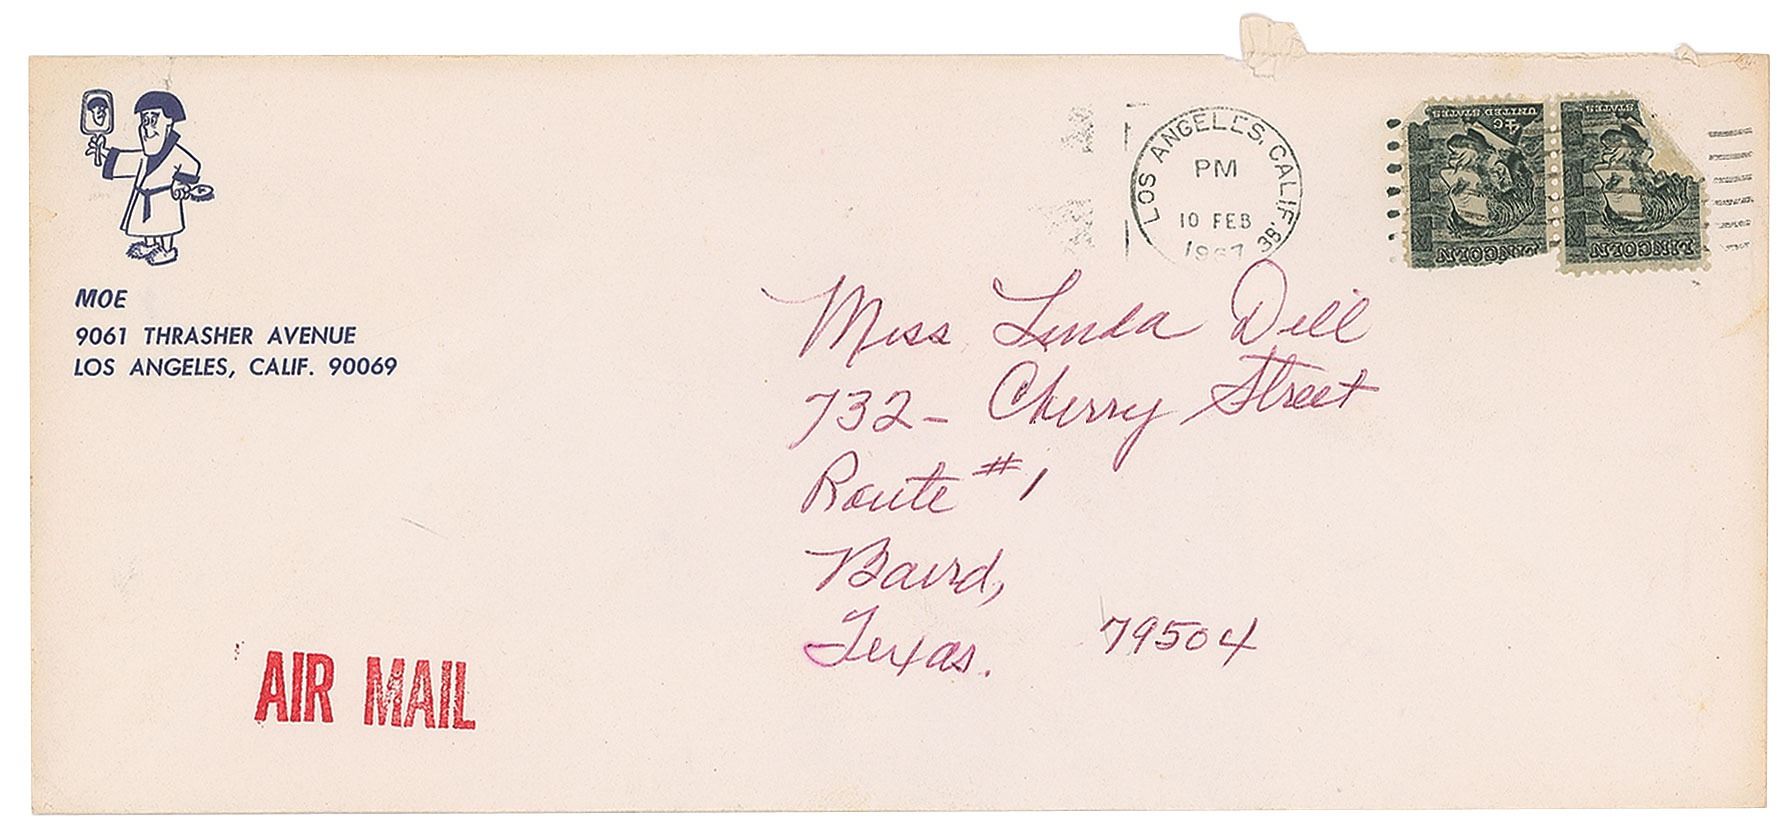 MOE
9061 THRASHER AVENUE
LOS ANGELES, CALIF. 90069
LOS ANGELES, CALIF. 38
PM
10 FEB
1967
UNITED STATES
4¢
LINCOLN
UNITED STATES
LINCOLN
Miss Linda Dell
732- Cherry Street
Route #1
Baird,
Texas. 79504
AIR MAIL